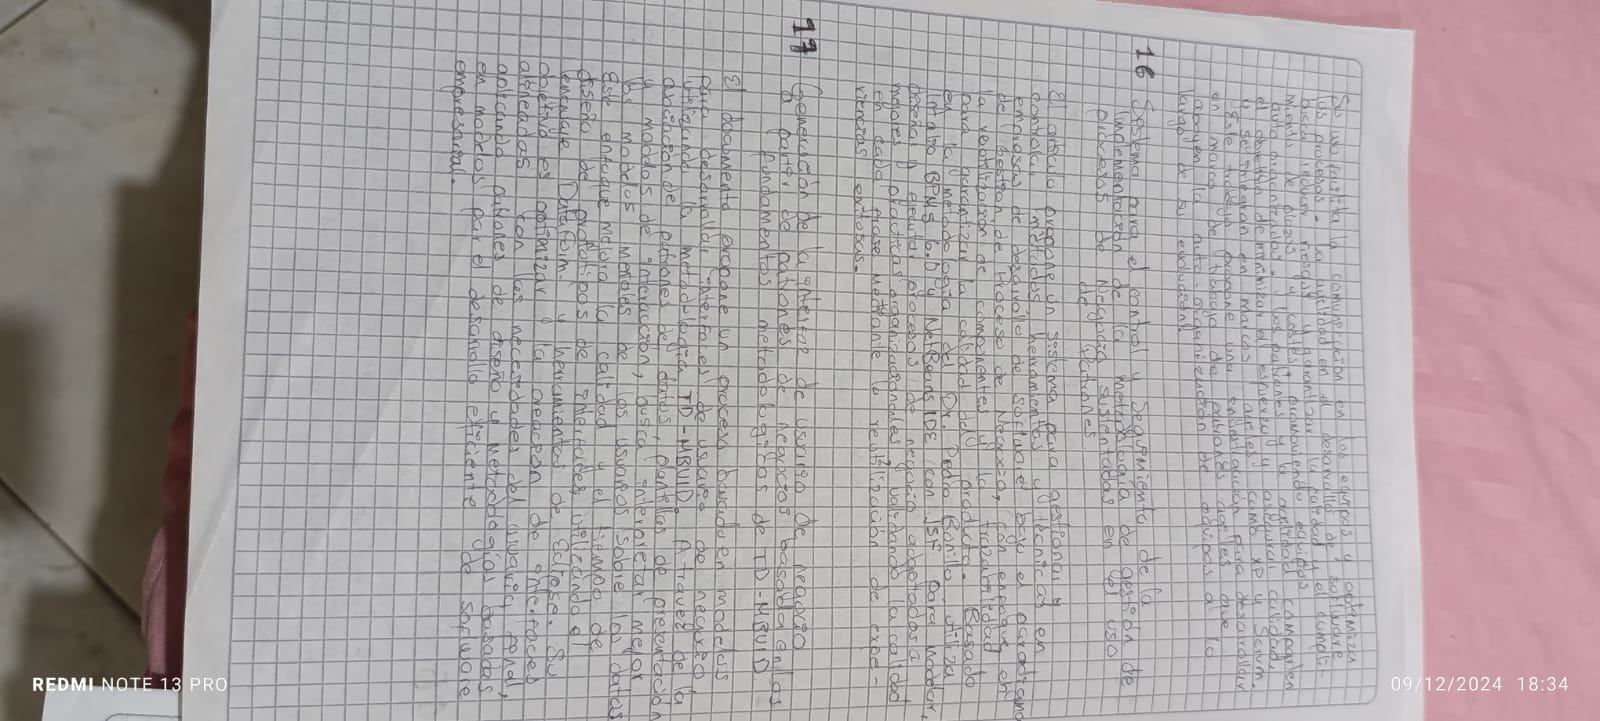 Su uso facilita la comunicación en los equipos y optimiza
los procesos. La agilidad en el desarrollo de software
busca reducir riesgos y garantizar la calidad y el cumpli-
miento de plazos y costes, promoviendo equipos
auto organizados. Los patrones y la agilidad comparten
el objetivo de minimizar el esfuerzo y asegurar calidad,
y se integran en marcos ágiles como XP y Scrum.
Este trabajo propone una investigación para desarrollar
un marco de trabajo de patrones ágiles que
apoyen la auto-organización de equipos a lo
largo de su evolución.
16 Sistema para el control y seguimiento de la
implementación de la metodología de gestión de
procesos de Negocio sustentadas en el uso
de Patrones
El artículo propone un sistema para gestionar y
controlar métodos, herramientas y técnicas en
empresas de desarrollo de software bajo el paradigma
de Gestión de Proceso de Negocio, con enfoque en
la reutilización de componentes y la trazabilidad
para garantizar la calidad del producto. Basado
en la metodología del Dr. Pedro Bonillo, utiliza
Intalio BPMS 6.0 y NetBeans IDE con JSF para modelar,
diseñar y ejecutar procesos de negocio adaptados a
mejores prácticas organizacionales, validando la calidad
en cada fase mediante la reutilización de expe-
riencias exitosas.
17 Generación de la interfaz de usuario de negocio
a partir de patrones de negocios basada en los
fundamentos metodológicos de TD-MBUID
El documento propone un proceso basado en modelos
para desarrollar interfaces de usuario de negocio
integrando la metodología TD-MBUID. A través de la
aplicación de patrones de datos, plantillas de presentación
y modos de interacción, busca interpretar mejor
los modelos mentales de los usuarios sobre los datos
Ese enfoque mejora la calidad y el tiempo de
diseño de prototipos de interfaces, utilizando el
lenguaje Dataform y herramientas de Eclipse. Su
objetivo es optimizar la creación de interfaces
alineadas con las necesidades del usuario final,
aplicando patrones de diseño y metodologías basadas
en modelos para el desarrollo eficiente de software
empresarial.
REDMI NOTE 13 PRO
09/12/2024 18:34